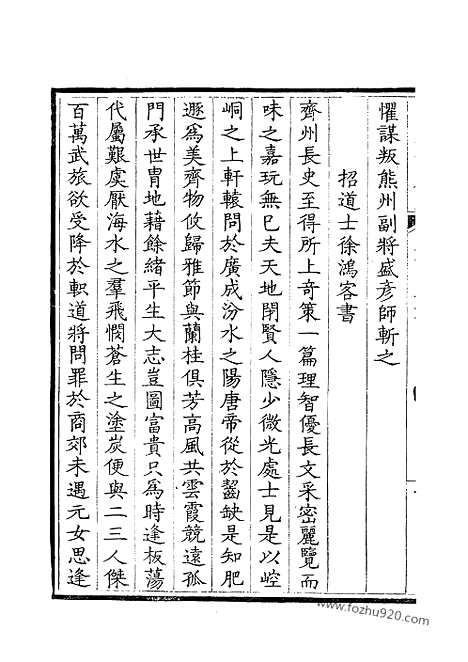 懼謀叛熊州副將盛彥師斬之
招道士徐鴻客書
齊州長史至得所上奇策一篇理智優長文采密麗覽而
味之嘉玩無已夫天地閉賢人隱少微光處士見是以崆
峒之上軒轅問於廣成汾水之陽唐帝從於齧缺是知肥
遯為美齊物攸歸雅節與蘭桂俱芳高風共雲霞競遠孤
門承世胄地藉餘緒平生大志豈圖富貴只為時逢板蕩
代屬艱虞厭海水之羣飛憫蒼生之塗炭便與二三人傑
百萬武旅欲受降於軹道將問罪於商郊未遇元女思逢
www.fozhu920.com